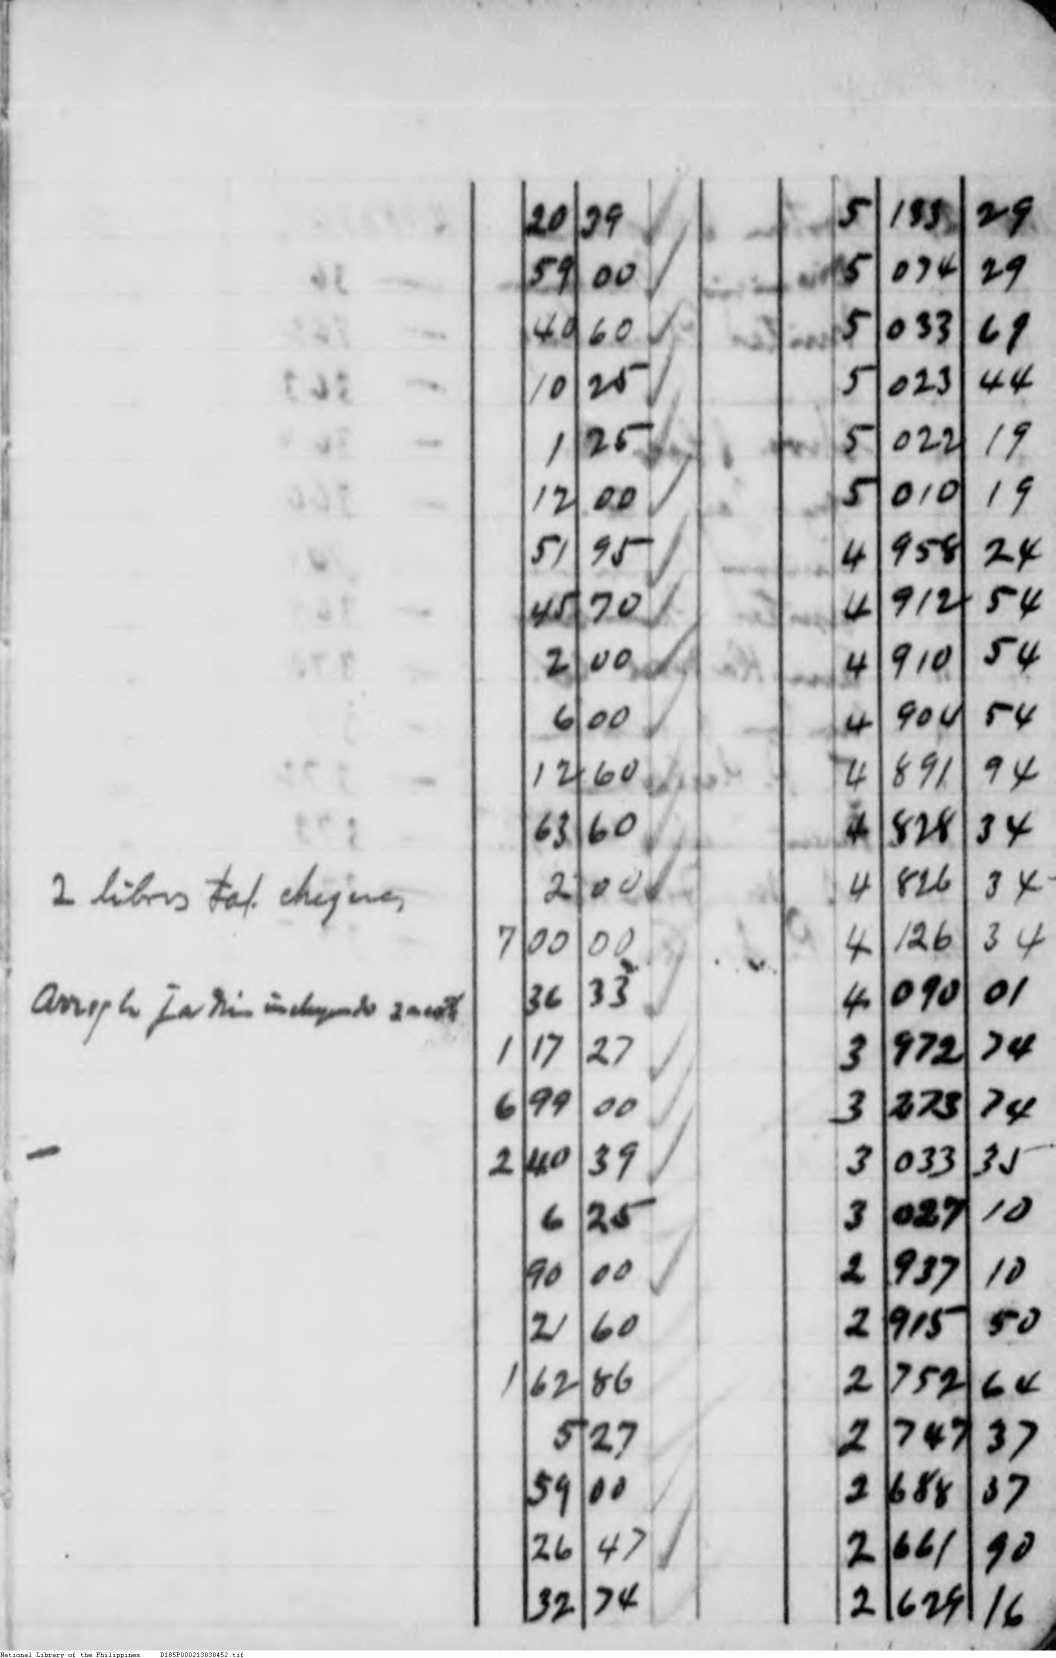 20 39 5 133 29
59 00 5 074 29
40 60 5 033 69
10 25 5 023 44
1 25 5 022 19
12 00 5 010 19
51 95 4 958 24
45 70 4 912 54
2 00 4 910 54
6 00 4 904 54
12 60 4 891 94
63 60 4 828 34
2 libros tal. cheques 2 00 4 826 34
7 00 00 4 126 34
36 33 4 090 01
1 17 27 3 972 74
6 99 00 3 273 74
— 2 40 39 3 033 35
6 25 3 027 10
90 00 2 937 10
21 60 2 915 50
1 62 86 2 752 64
5 27 2 747 37
59 00 2 688 37
26 47 2 661 90
32 74 2 629 16
National Library of the Philippines D185P000213030452.tif